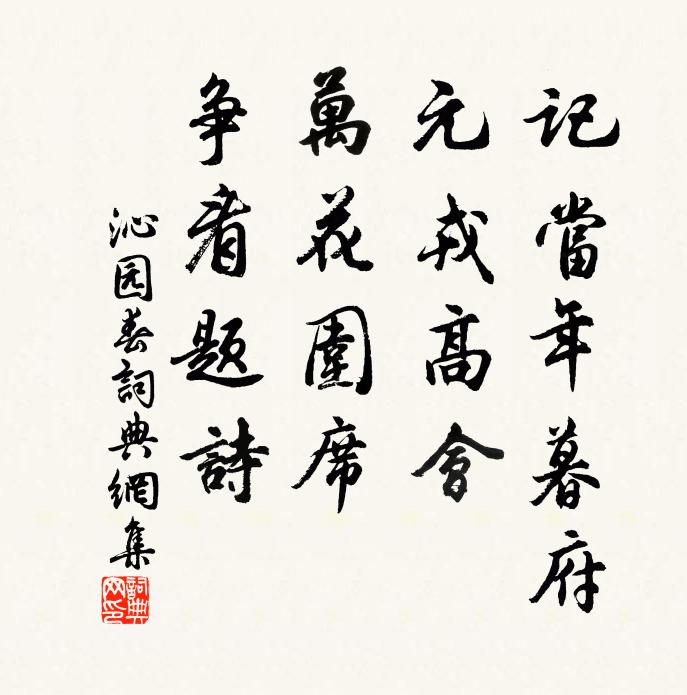 記當年暮府
元戎高會
萬花圍席
争看題詩
沁园春詞典網集
詞典网印